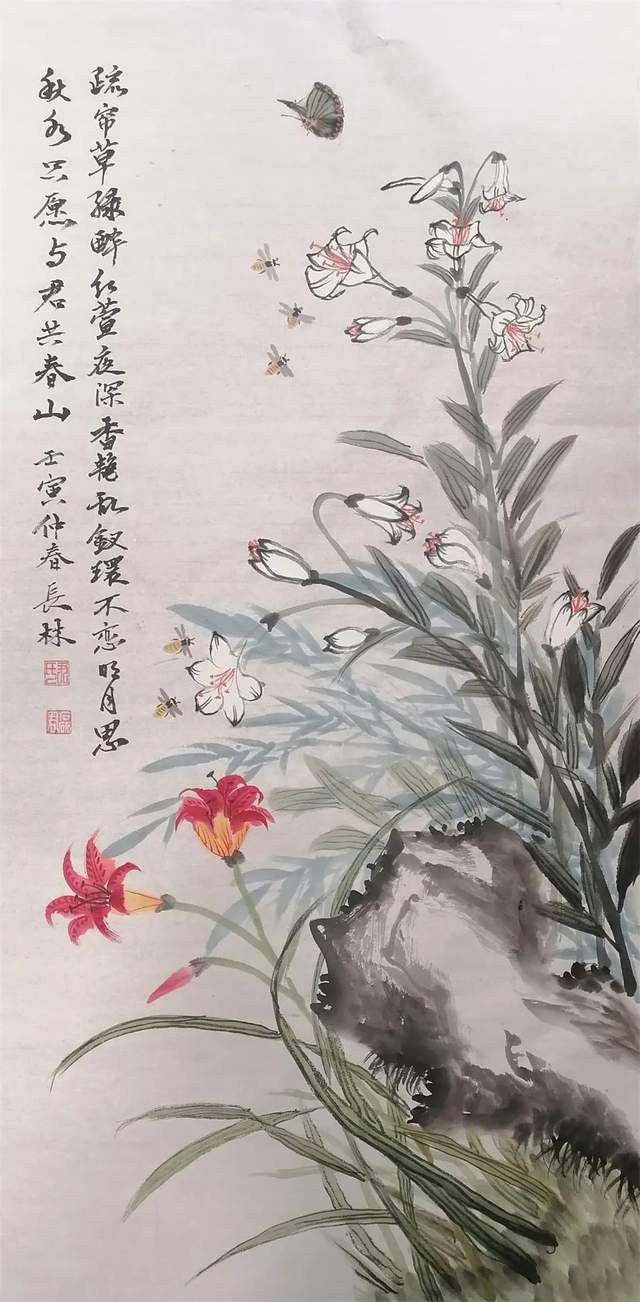 疏帘草绿醉红萱夜深香艳乱钗环不恋明月思
秋水只愿与君共春山 壬寅仲春 長林